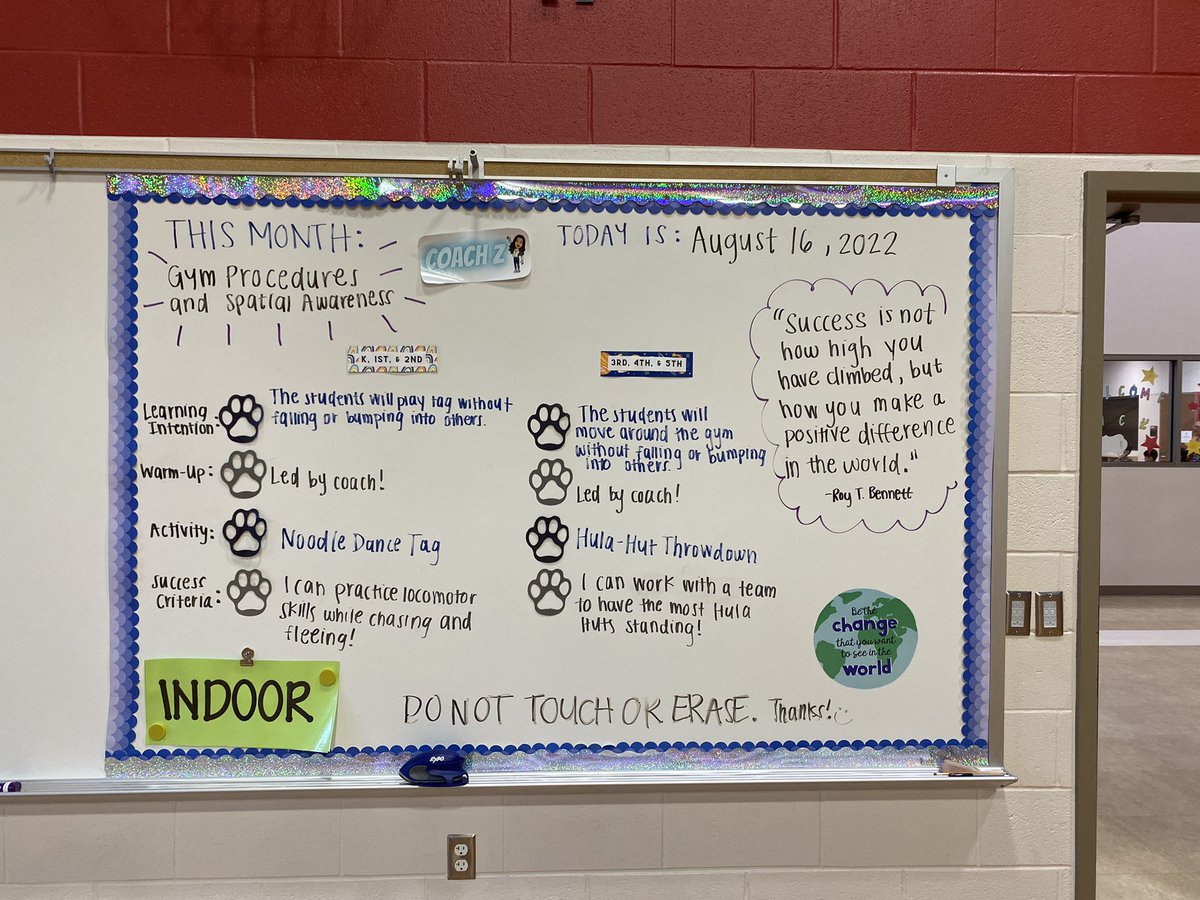 THIS MONTH:
Gym Procedures
and Spatial Awareness
COACH Z
TODAY IS: August 16, 2022
K, 1ST, & 2ND
Learning
Intention:
The students will play tag without
falling or bumping into others.
Warm-Up: Led by coach!
Activity: Noodle Dance Tag
Success
Criteria:
I can practice locomotor
skills while chasing and
fleeing!
3RD, 4TH, & 5TH
The students will
move around the gym
without falling or bumping
into others.
Led by coach!
Hula-Hut Throwdown
I can work with a team
to have the most Hula
Huts standing!
"Success is not
how high you
have climbed, but
how you make a
positive difference
in the world."
-Roy T. Bennett
Be the
change
that you want
to see in the
world
INDOOR
DO NOT TOUCH OR ERASE. Thanks!
EXPO